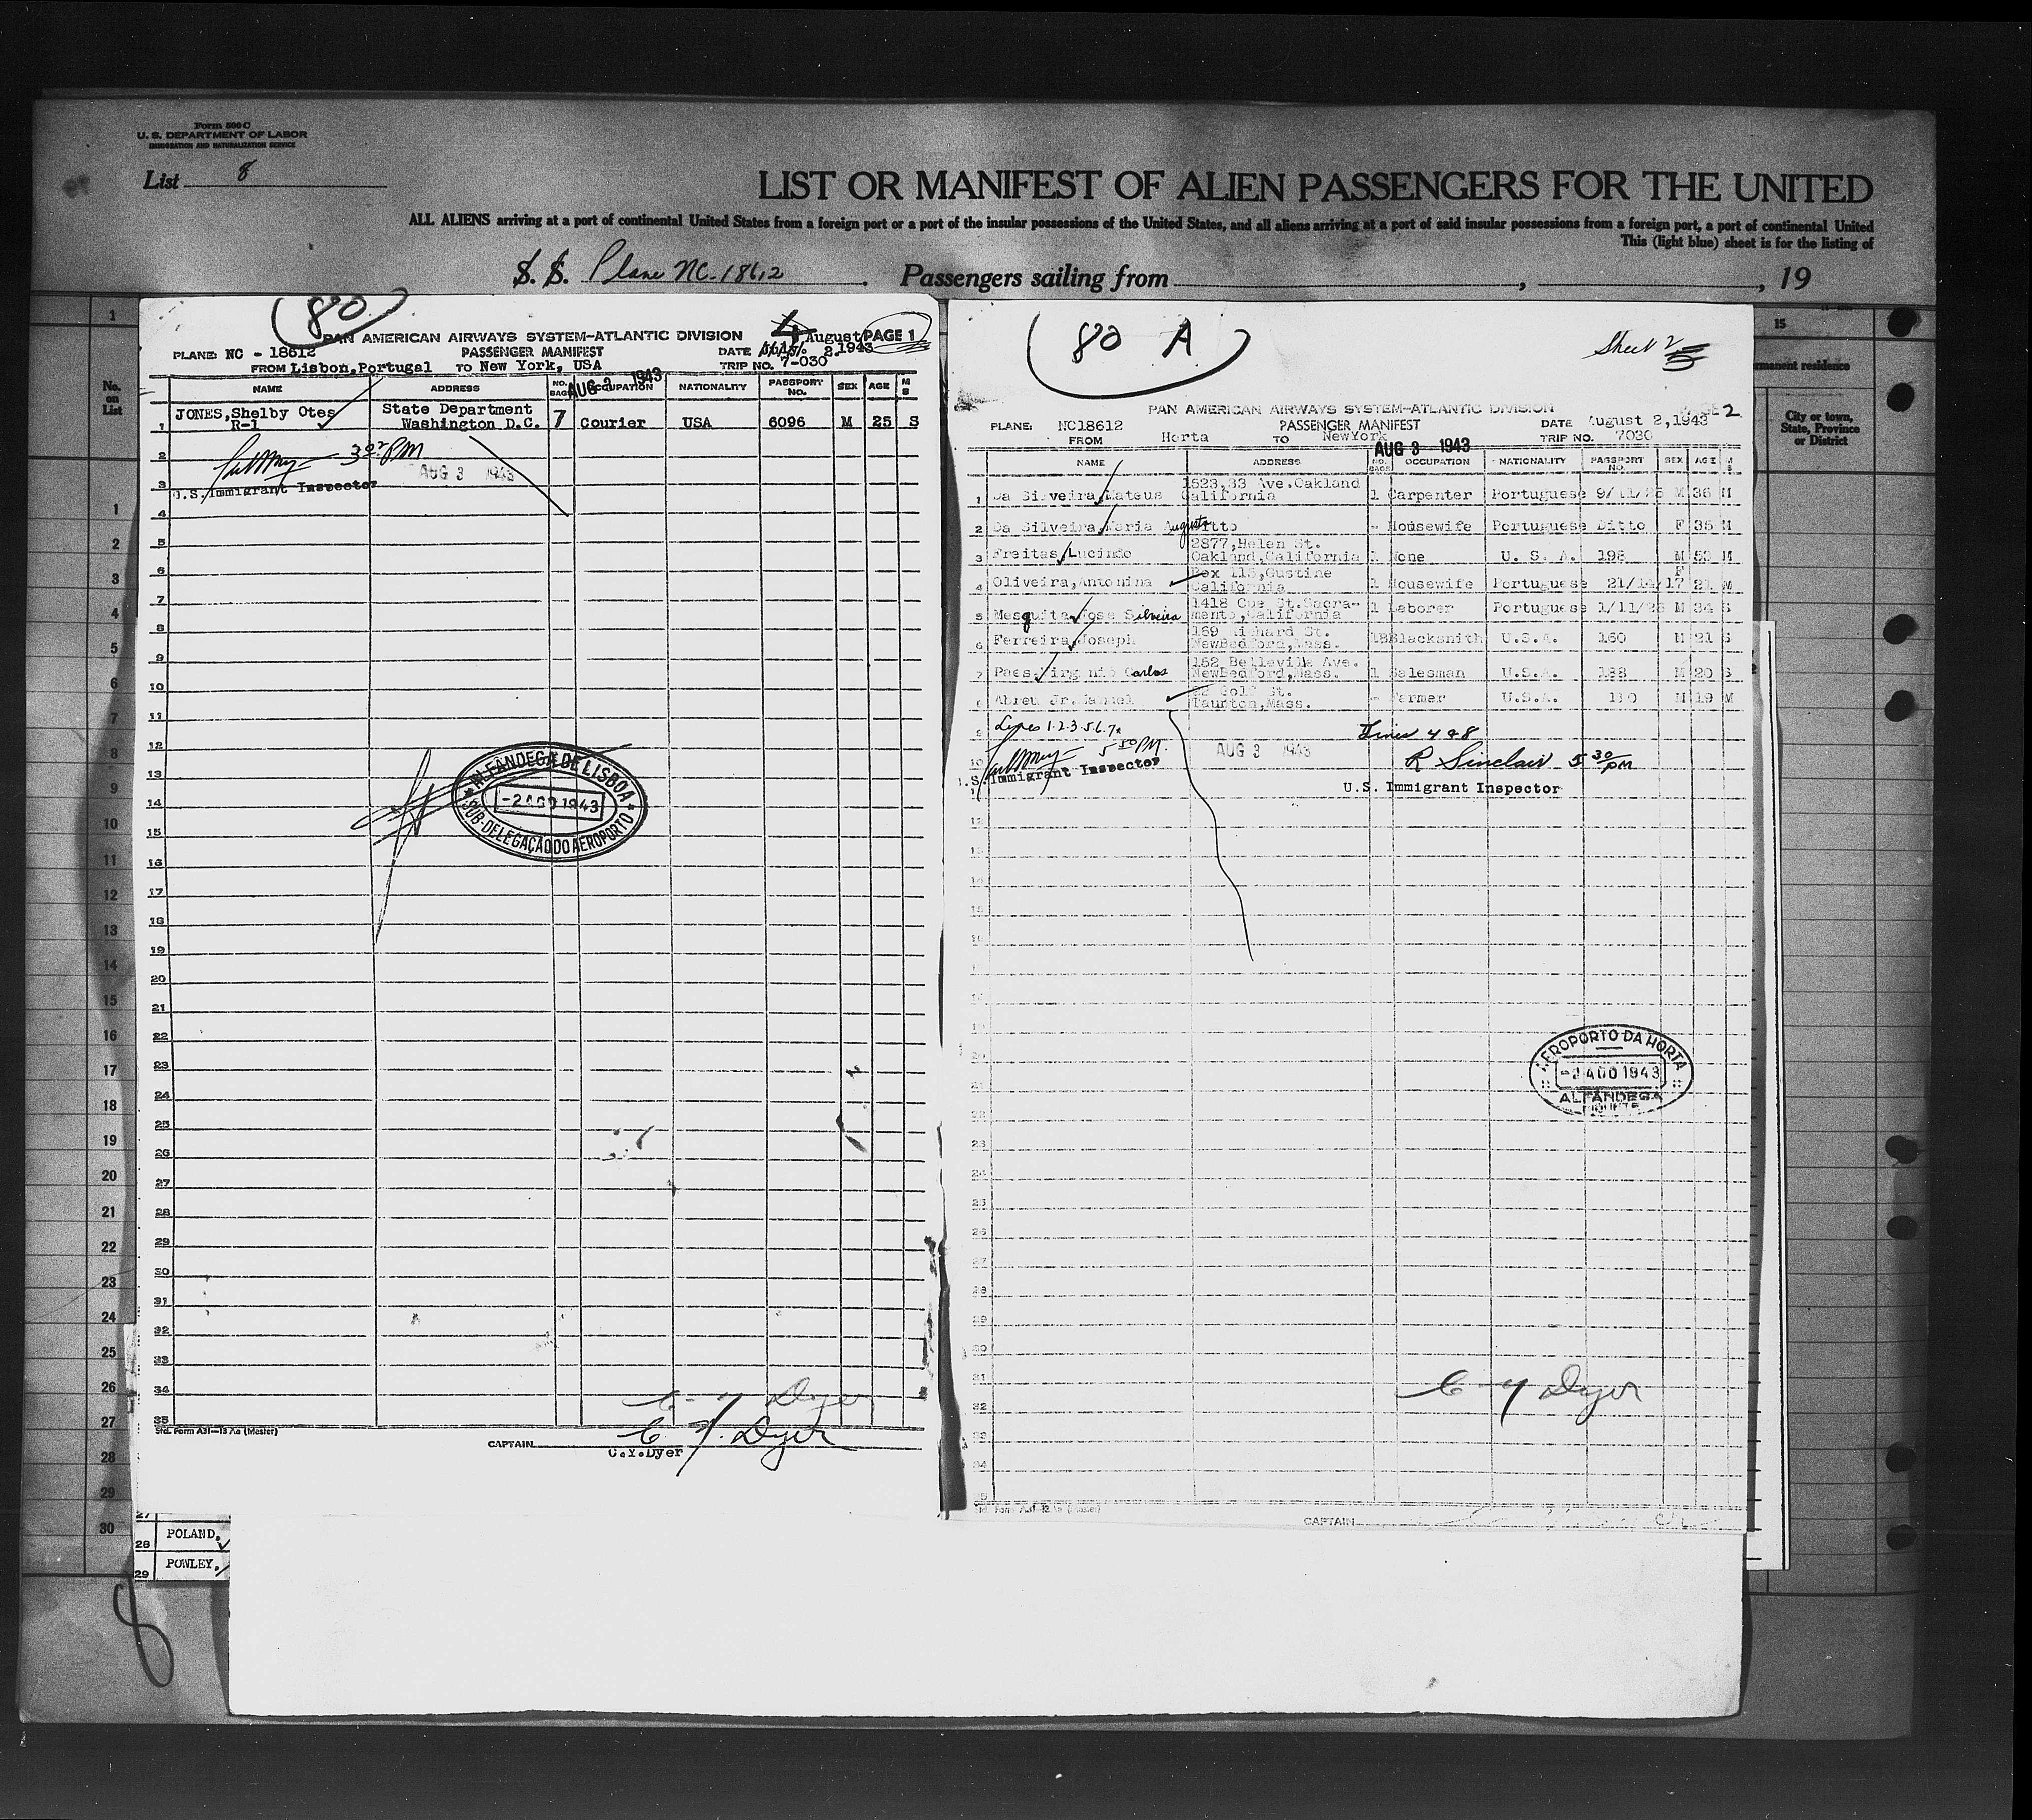 Form 500 C
U. S. DEPARTMENT OF LABOR
IMMIGRATION AND NATURALIZATION SERVICE
List 8
LIST OR MANIFEST OF ALIEN PASSENGERS FOR THE UNITED
ALL ALIENS arriving at a port of continental United States from a foreign port or a port of the insular possessions of the United States, and all aliens arriving at a port of said insular possessions from a foreign port, a port of continental United
This (light blue) sheet is for the listing of
S. S. Plane NC-18612 Passengers sailing from , , 19
No. on List
1
1
2
3
4
5
6
7
8
9
10
11
12
13
14
15
16
17
18
19
20
21
22
23
24
25
26
27
28
29
30
8
80
PAN AMERICAN AIRWAYS SYSTEM-ATLANTIC DIVISION 4 August PAGE 1
PLANE: NC - 18612 PASSENGER MANIFEST DATE 2, 1943
FROM Lisbon, Portugal TO New York, USA TRIP NO. 7-030
AUG 3 1943
NAME ADDRESS NO. BAGS OCCUPATION NATIONALITY PASSPORT NO. SEX AGE M S
1 JONES, Shelby Otes State Department 7 Courier USA 6096 M 25 S
R-1 Washington D.C.
2 30 PM
3 AUG 3 1943
U.S. Immigrant Inspector
4
5
6
7
8
9
10
11
12
13
14
15
16
17
18
19
20
21
22
23
24
25
26
27
28
29
30
31
32
33
34
35
ALFANDEGA DE LISBOA
-2 AGO 1943
SUB-DELEGAÇÃO DO AEROPORTO
C Y Dyer
Std. Form A31-13 7a (Master)
CAPTAIN C. Y. Dyer
C.Y.Dyer
27
28 POLAND,
29 POWLEY,
80 A
Sheet 2
PAN AMERICAN AIRWAYS SYSTEM-ATLANTIC DIVISION 2
PLANE: NC18612 PASSENGER MANIFEST DATE August 2, 1943
FROM Horta TO NewYork TRIP NO. 7030
AUG 3 1943
NAME ADDRESS NO. BAGS OCCUPATION NATIONALITY PASSPORT NO. SEX AGE M S
1523,33 Ave.Oakland
1 Da Silveira, Mateus California 1 Carpenter Portuguese M 36 M
2 Da Silveira, Maria Augusta Ditto - Housewife Portuguese Ditto F 35 M
2877, Helen St.
3 Freitas, Lucindo Oakland, California 1 None U. S. A. 198 M M
Box 113, Gustine
4 Oliveira, Antonina California 1 Housewife Portuguese F 21 M
5 Mesquita, Jose Silveira mento, California 1 Laborer Portuguese 1/11/28 M 34 S
6 Ferreira, Joseph NewBedford, Mass. Blacksmith U.S.A. 160 M 21 S
152 Belleville Ave.
7 Paes, Virginio Carlos NewBedford, Mass. 1 Salesman U.S.A. 188 M 20 S
8 Abreu Jr. Manuel Taunton, Mass. - Farmer U.S.A. M 19 M
9 Lines 1-2-3-5-6-7 Lines 4 & 8
10 5 30 PM. AUG 3 1943 R Sinclair 5 30 PM
U.S. Immigrant Inspector U.S. Immigrant Inspector
AEROPORTO DA HORTA
-2 AGO 1943
ALFANDEGA
C Y Dyer
CAPTAIN
15
permanent residence
City or town, State, Province or District